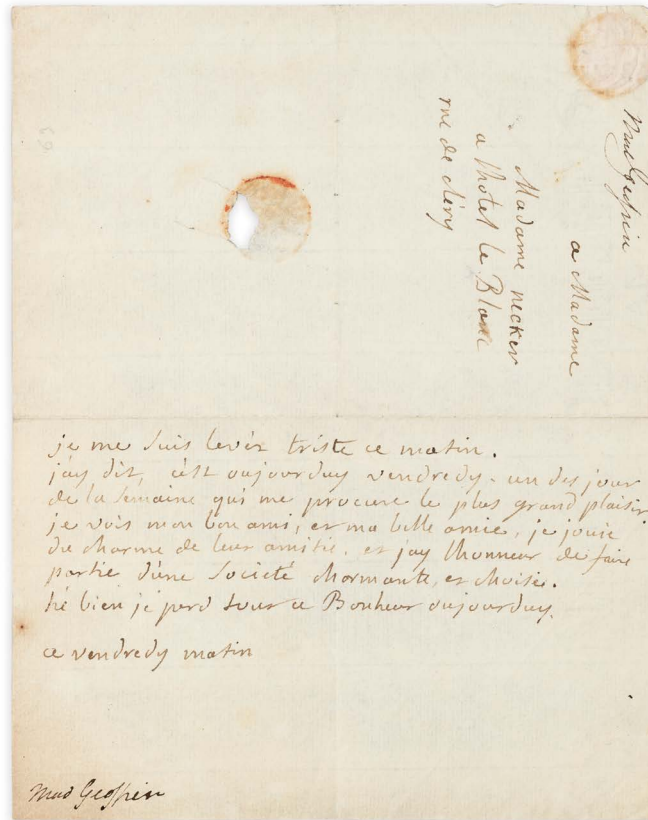 Mme Geofrin
a Madame
Madame necker
a lhotel le Blanc
rue de clery
je me suis levéz triste ce matin.
j'ay dit, cést oujourduy vendredy. un des jour
de la semaine qui me procure le plus grand plaisir
je vois mon bon ami, et ma belle amie, je jouie
du charme de leur amitie. et jay lhonneur de faire
partie d'une societé charmante, et choisie.
hé bien je perd tous ce Bonheur oujourduy.
ce vendredy matin
Mad Geoffrin